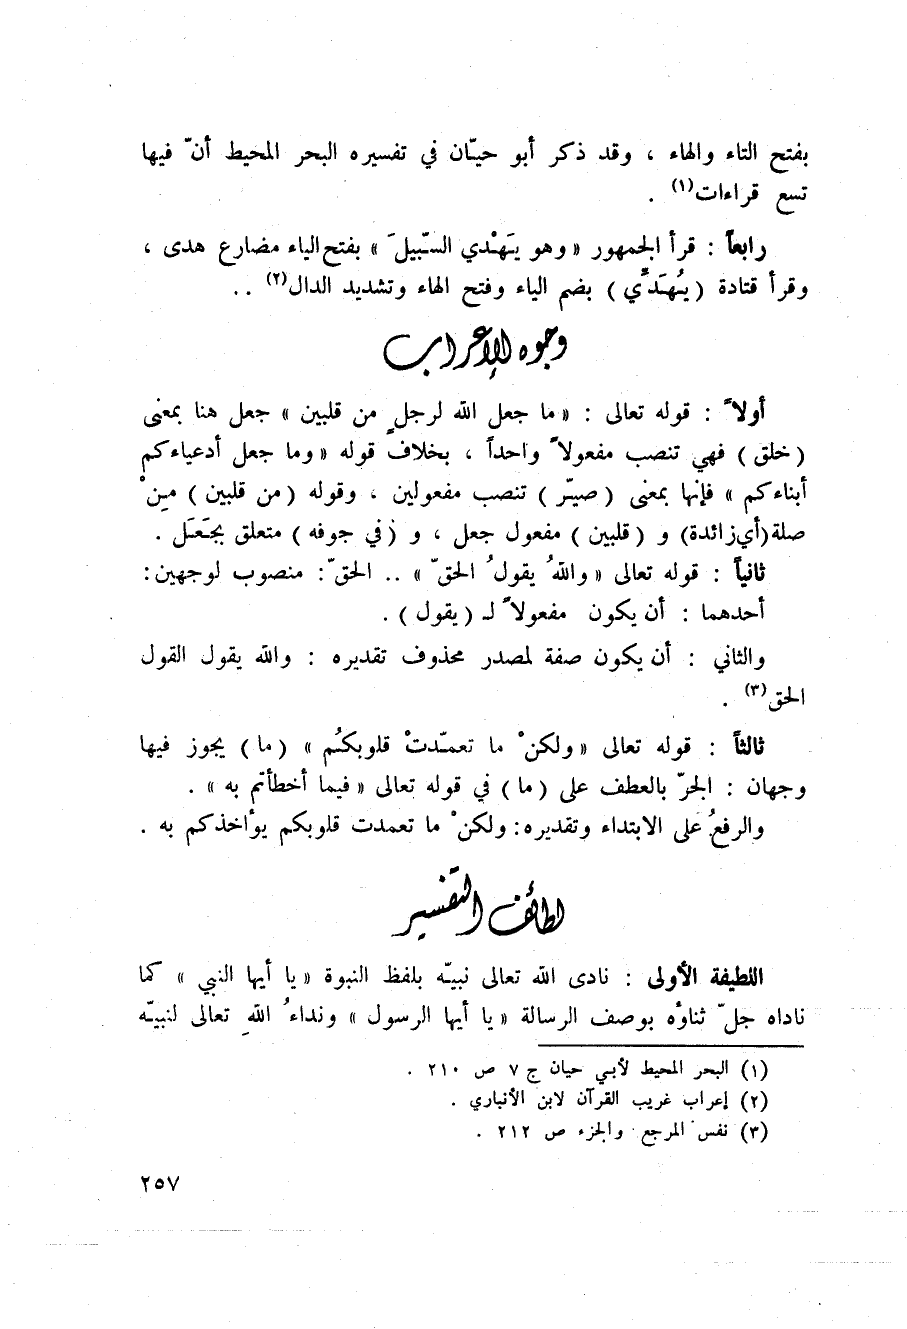 بفتح التاء والهاء ، وقد ذكر أبو حيّان في تفسيره البحر المحيط أنّ فيها
تسع قراءات(١) .
رابعاً : قرأ الجمهور « وهو يَهْدي السّبيلَ » بفتح الياء مضارع هدى ،
وقرأ قتادة ( يُهَدِّي ) بضم الياء وفتح الهاء وتشديد الدال(٢) . .
وجوه الإعراب
أولاً : قوله تعالى : « ما جعل الله لرجلٍ من قلبين » جعل هنا بمعنى
( خلق ) فهي تنصب مفعولاً واحداً ، بخلاف قوله « وما جعل أدعياءكم
أبناءكم » فإنها بمعنى ( صيّر ) تنصب مفعولين ، وقوله ( من قلبين ) مِنْ
صلة (أي زائدة) و ( قلبين ) مفعول جعل ، و ( في جوفه ) متعلق بجَعَل .
ثانياً : قوله تعالى « واللهُ يقولُ الحقّ » .. الحقّ : منصوب لوجهين :
أحدهما : أن يكون مفعولاً لـ ( يقول ) .
والثاني : أن يكون صفة لمصدر محذوف تقديره : والله يقول القول
الحق(٣) .
ثالثاً : قوله تعالى « ولكنْ ما تعمّدتْ قلوبكُم » ( ما ) يجوز فيها
وجهان : الجرّ بالعطف على ( ما ) في قوله تعالى « فيما أخطأتم به » .
والرفعُ على الابتداء وتقديره : ولكنْ ما تعمدت قلوبكم يؤاخذكم به .
لطائف التفسير
اللطيفة الأولى : نادى الله تعالى نبيّه بلفظ النبوة « يا أيها النبي » كما
ناداه جلّ ثناؤه بوصف الرسالة « يا أيها الرسول » ونداءُ اللهِ تعالى لنبيّه
(١) البحر المحيط لأبي حيان ج ٧ ص ٢١٠ .
(٢) إعراب غريب القرآن لابن الأنباري .
(٣) نفس المرجع والجزء ص ٢١٢ .
٢٥٧